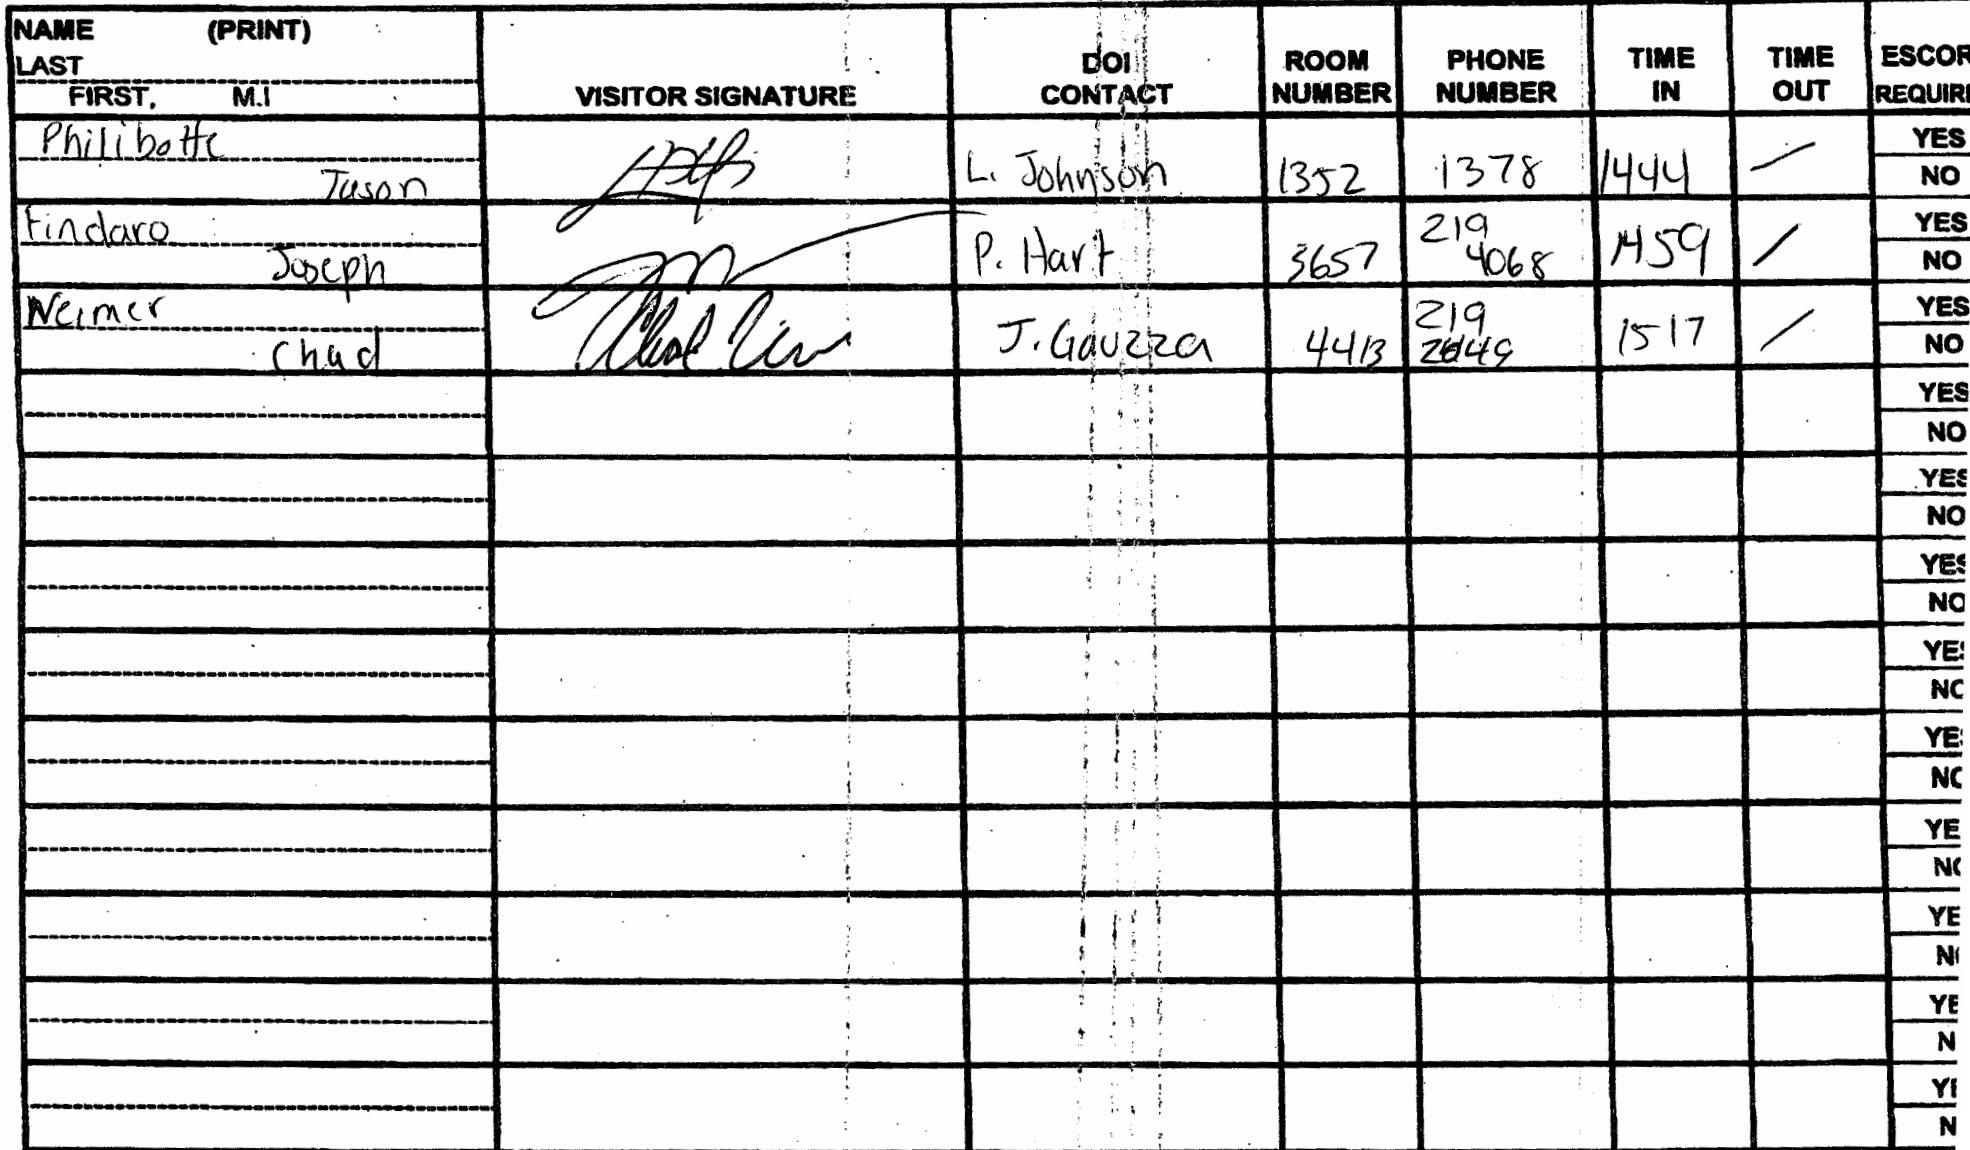 NAME (PRINT)
LAST
FIRST, M.I
VISITOR SIGNATURE
DOI
CONTACT
ROOM
NUMBER
PHONE
NUMBER
TIME
IN
TIME
OUT
ESCOR
REQUIRE
Philibotte
Jason
L. Johnson
1352
1378
1444
YES
NO
Findaro
Joseph
P. Hart
3657
219
4068
1459
YES
NO
Weimer
Chad
J. Gauzza
4413
219
1517
YES
NO
YES
NO
YES
NO
YES
NO
YES
NO
YE
NO
YE
NO
YE
N
YE
N
Y
N